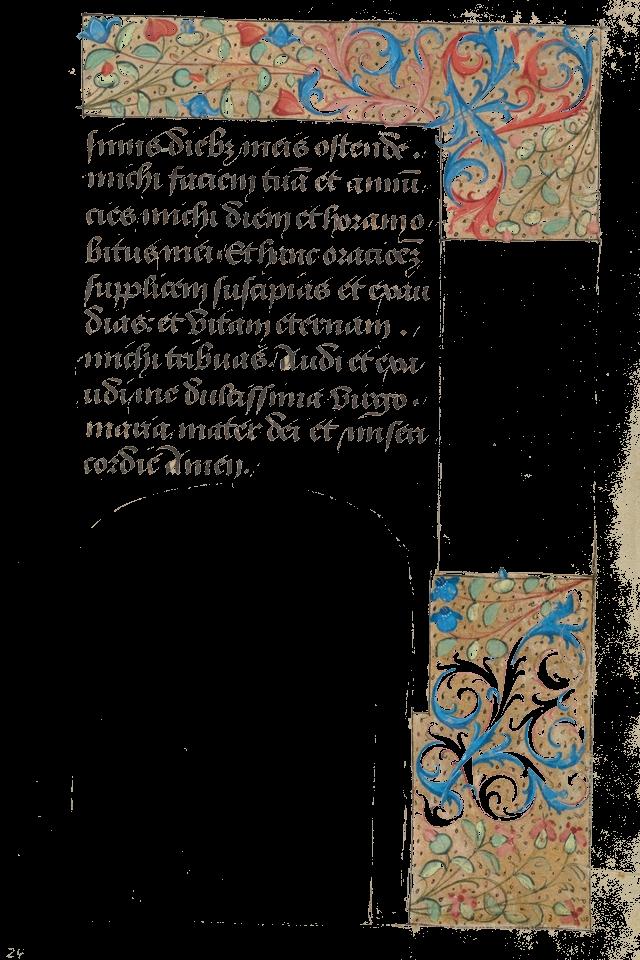 simis dieb3 meis ostende.
michi faciem tuā et annū
cies michi diem et horam o
bitus mei. Et hanc oracioē3
supplicem suscipias et exau
dias: et vitam eternam.
michi tribuas. Audi et exa
udi me dulcissima virgo.
maria mater dei et miseri
cordie Amen.
24